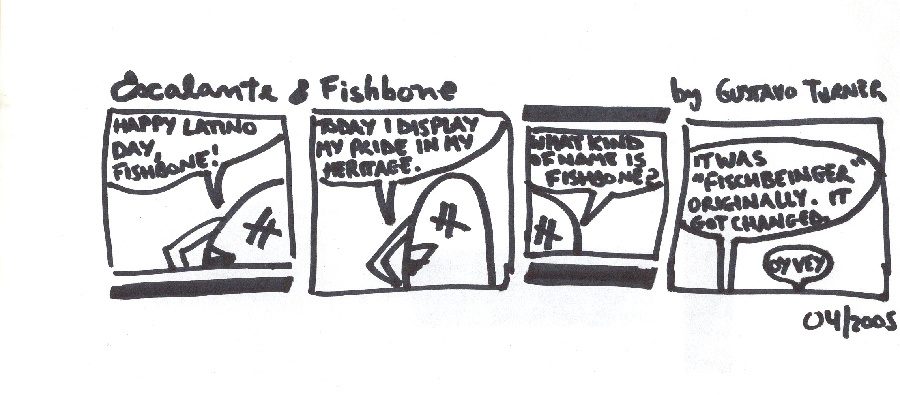 Escalante & Fishbone
by GUSTAVO TURNER
HAPPY LATINO
DAY,
FISHBONE!
TODAY I DISPLAY
MY PRIDE IN MY
HERITAGE.
WHAT KIND
OF NAME IS
FISHBONE?
IT WAS
"FISCHBEINGER"
ORIGINALLY. IT
GOT CHANGED.
OY VEY
04/2005